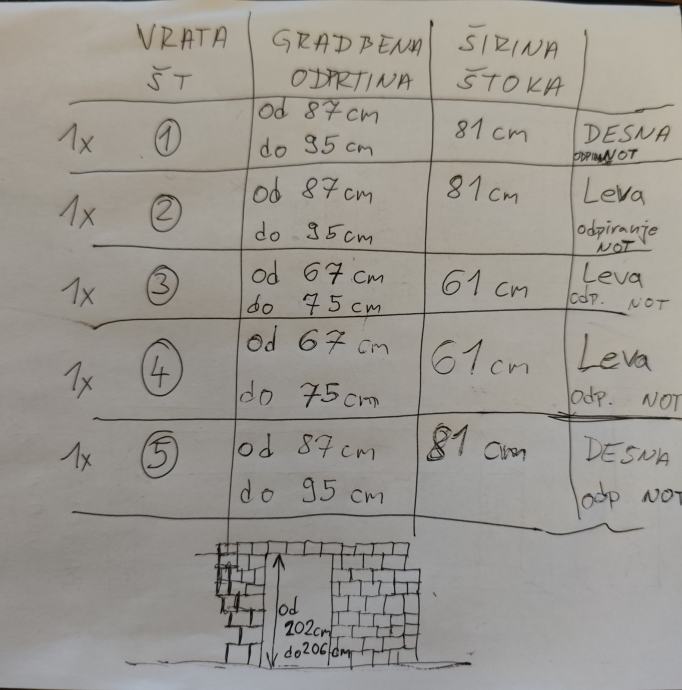 VRATA GRADBENA ŠIRINA
ŠT ODPRTINA ŠTOKA
od 87 cm
1x 1 do 95 cm 81 cm DESNA
ODPIRANJE NOT
od 87 cm 81 cm Leva
1x 2 do 95 cm odpiranje
NOT
od 67 cm Leva
1x 3 do 75 cm 61 cm odp. NOT
od 67 cm 61 cm Leva
1x 4 do 75 cm odp. NOT
1x 5 od 87 cm 81 cm DESNA
do 95 cm odp NOT
od
202cm
do 206 cm